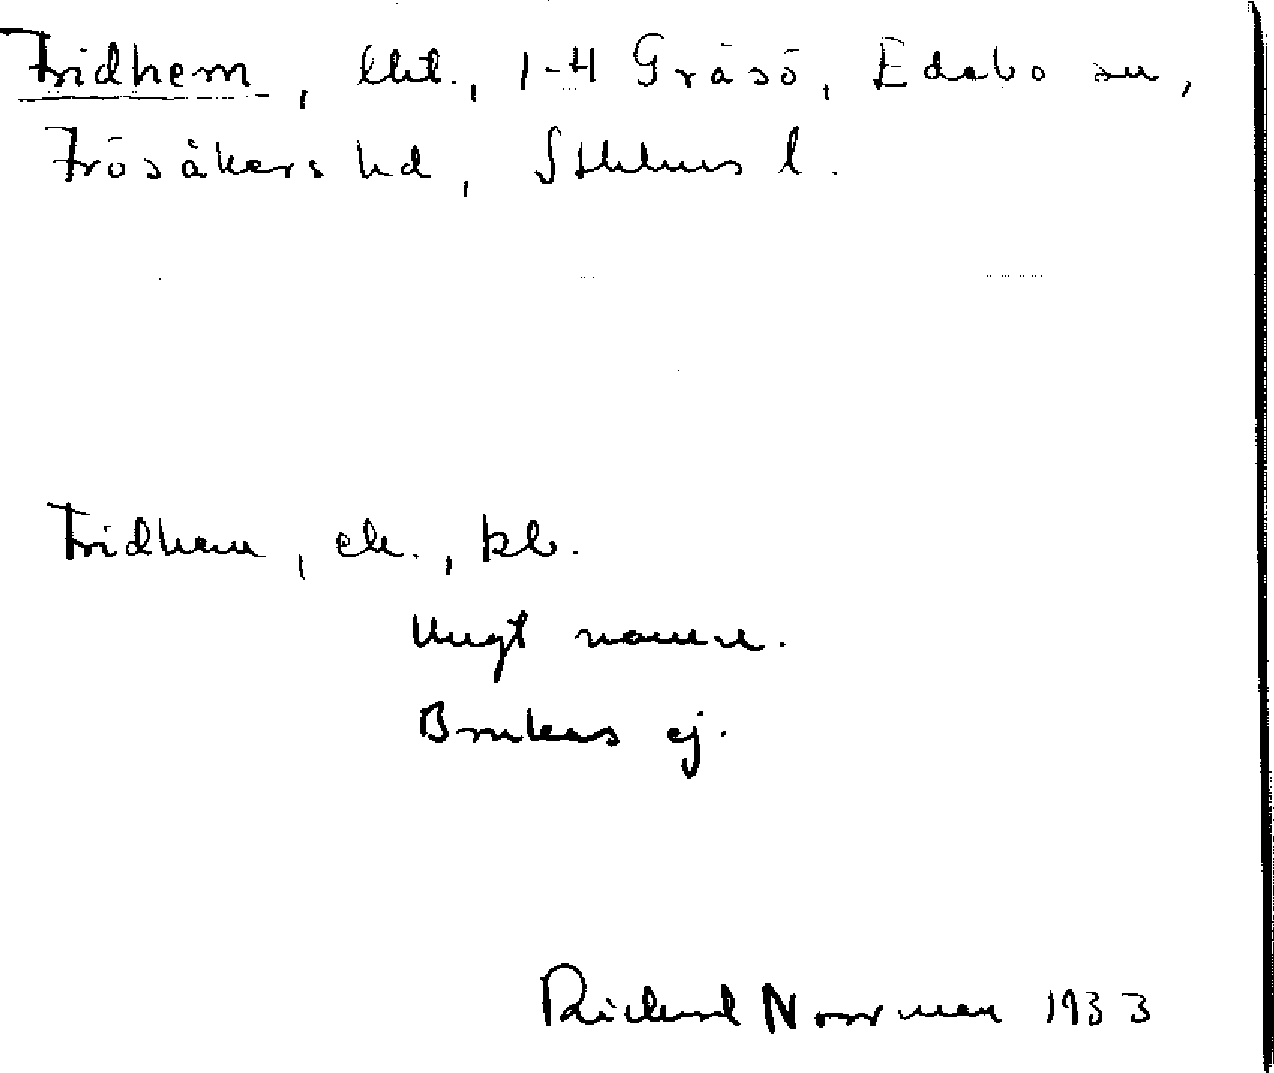 Fridhem, lht., 1-4 Gräsö, Edebo sn,
Frösåkers hd, Sthlms l.
Fridhem, ek., kb.
Ungt namn.
Brukas ej.
Rickard Norrman 1933